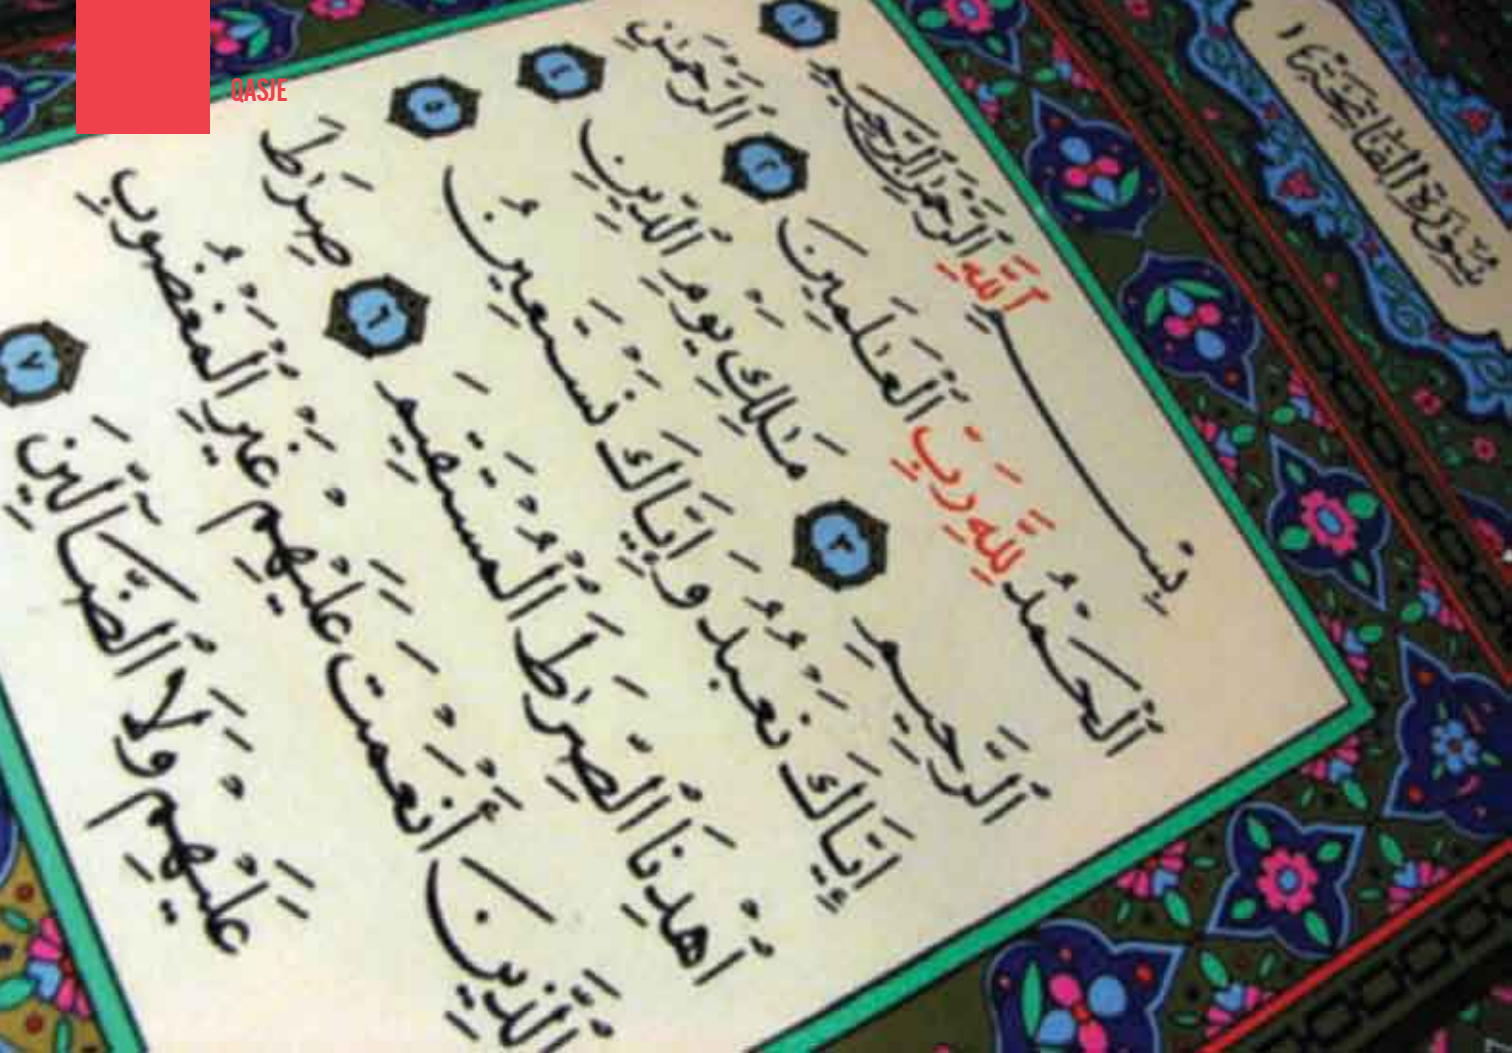 QASJE
سُورَةُ الفَاتِحَةِ ١٤
بِسْمِ ٱللَّهِ ٱلرَّحْمَٰنِ ٱلرَّحِيمِ ١
ٱلْحَمْدُ لِلَّهِ رَبِّ ٱلْعَٰلَمِينَ ٢ ٱلرَّحْمَٰنِ
ٱلرَّحِيمِ ٣ مَٰلِكِ يَوْمِ ٱلدِّينِ ٤
إِيَّاكَ نَعْبُدُ وَإِيَّاكَ نَسْتَعِينُ ٥
ٱهْدِنَا ٱلصِّرَٰطَ ٱلْمُسْتَقِيمَ ٦ صِرَٰطَ
ٱلَّذِينَ أَنْعَمْتَ عَلَيْهِمْ غَيْرِ ٱلْمَغْضُوبِ
عَلَيْهِمْ وَلَا ٱلضَّآلِّينَ ٧